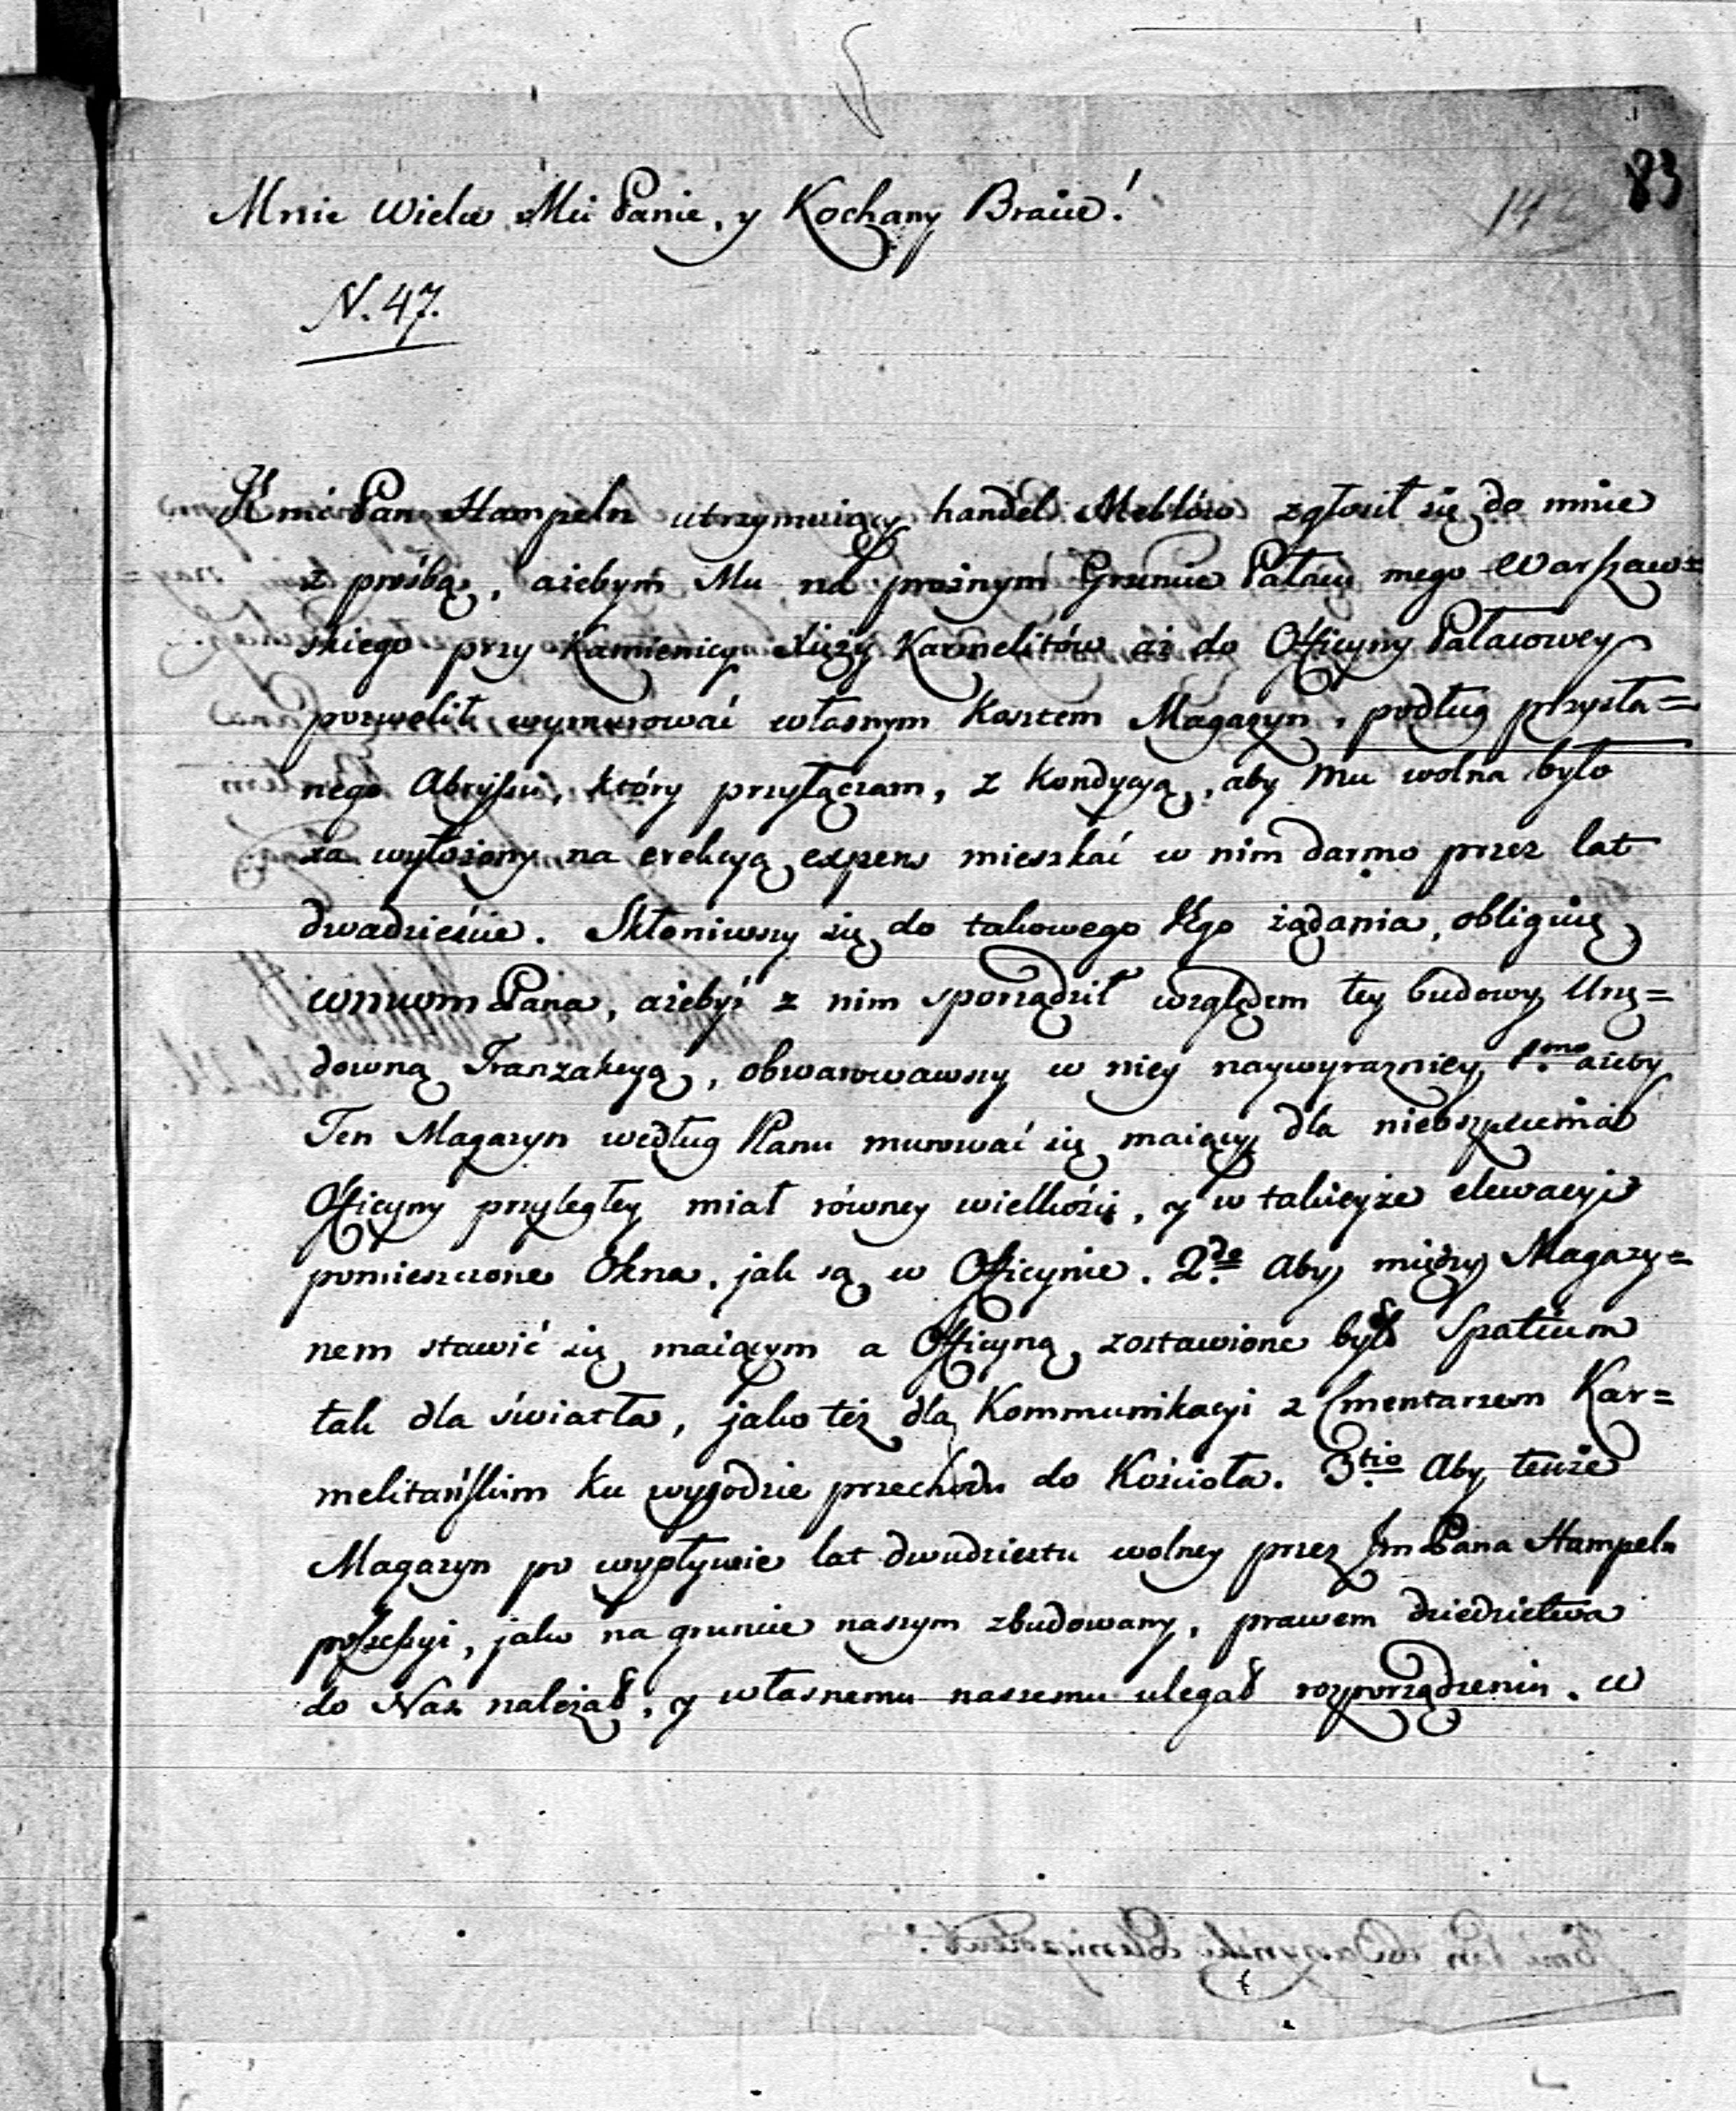 83
Mnie Wielce Mci Panie, y Kochany Bracie!
N. 47.
Jmć Pan Hampeln utrzymuiący handel Meblów zgłosił się do mnie
z prośbą, ażebym Mu na prożnym Gruncie Pałacu mego Warszaw=
skiego przy Kamienicy Xięży Karmelitów aż do Officyny Pałacowey
pozwolił wymurować własnym kosztem Magazyn, podług przysła=
nego Abryssu, który przyłączam, z Kondycyą, aby Mu wolna było
za wyłożony na erekcyą expens mieszkać w nim darmo przez lat
dwadzieście. Skłoniwszy się do takowego Jego żądania, obliguię
WMWM Pana, ażebyś z nim sporządził względem tey budowy Urzę=
downą Tranzakcyą, obwarowawszy w niey naywyrazniey, 1.mo ażeby
Ten Magazyn według Planu murować się maiący dla nieoszpecenia
Officyny przyległey miał równey wielkości, y w takieyże elewacyi
pomieszczone Okna, jak są w Officynie. 2.do Aby między Magazy=
nem stawić się maiącym a Officyną zostawione było Spatium
tak dla światła, jako też dla Kommunikacyi z Cmentarzem Kar=
melitańskim ku wygodzie przechodu do Kościoła. 3.tio Aby tenże
Magazyn po wypływie lat dwudziestu wolney przez Jm Pana Hampeln
possessyi, jako na gruncie naszym zbudowany, prawem dziedzictwa
do Nas należał, y własnemu naszemu ulegał rozporządzeniu. W